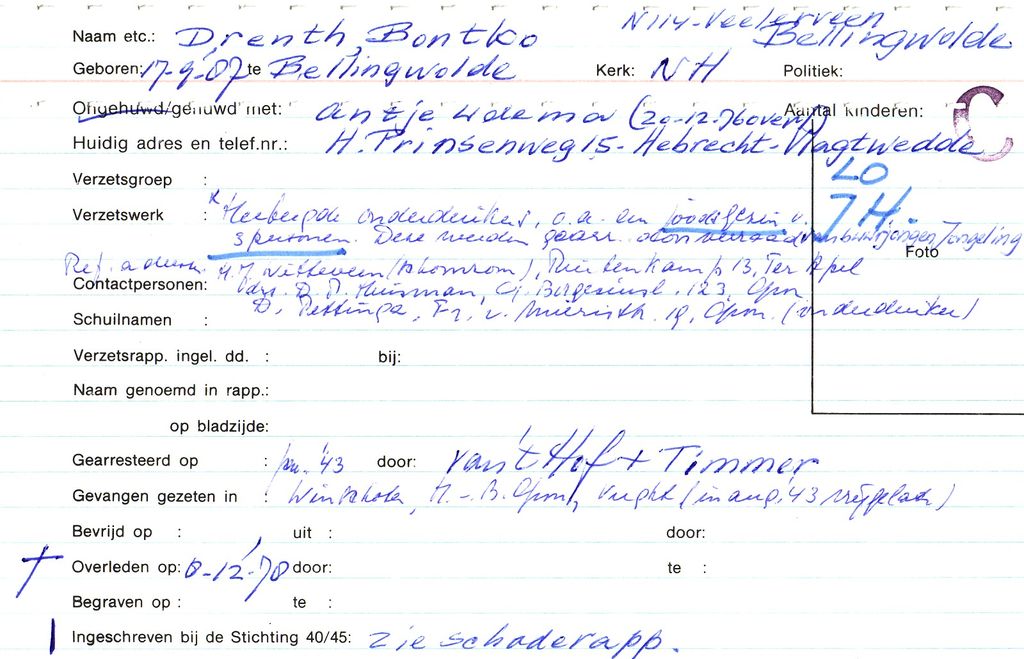 Naam etc.: Drenth, Bontko
Bellingwolde
Geboren: 17-9-07 te Bellingwolde Kerk: NH Politiek:
Ongehuwd/gehuwd met: Antje (20-12-76 overl.) Aantal kinderen: C
Huidig adres en telef.nr.: H. Prinsenweg 15 - Hebrecht - Vlagtwedde
LO
Verzetsgroep :
7 H.
Verzetswerk : x Herbergde onderduikers, o.a. een joods gezin v.
3 personen. Deze werden gearr. door verraad van buurjongen/jongeling
Foto
Ref. adressen: H.J. Witteveen, Ruitenkamp 13, Ter Apel
Contactpersonen: drs. D. Huisman, 123, Gron
D. Pettinga, Fr. v. Mierisstr. 19, Gron. (onderduiker)
Schuilnamen :
Verzetsrapp. ingel. dd. : bij:
Naam genoemd in rapp.:
op bladzijde:
Gearresteerd op : jan. '43 door: van 't Hof + Timmer
Gevangen gezeten in : Winschoten, H.v.B. Gron, Vught (in aug. '43 vrijgelaten)
Bevrijd op : uit : door:
† Overleden op: 8-12-70 door: te :
Begraven op : te :
Ingeschreven bij de Stichting 40/45: zie schaderapp.